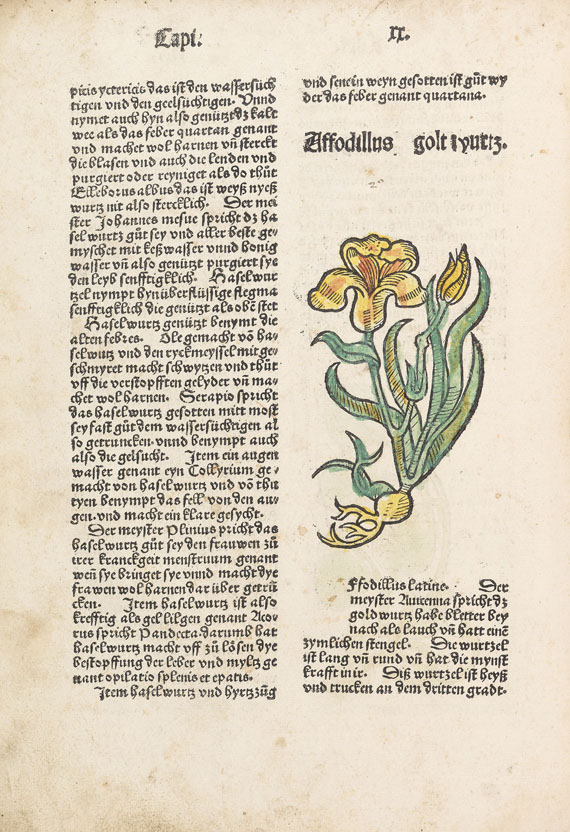 Capi.
xx.
picis yctericis das ist den wassersüch
tigen vnd den geelsüchtigen. Vnnd
nymet auch hyn also genützt dz kalt
wee als das feber quartan genant
vnd machet wol harnen vñ sterckt
die blasen vnd auch die lenden vnd
purgiert oder reyniget als do thůt
Elleborus albus das ist weyß nyeß
wurtz nit also stercklich. Der mei
ster Johannes mesue spricht dz ha
selwurtz gůt sey vnd aller beste ge⸗
myschet mit keßwasser vnnd honig
wasser vñ also genützt purgiert sye
den leyb senfftigklich. Haselwur
tzel nympt hynüberflüssige flegma
senfftigklich die genützt als obẽ stet
Haselwurtz genützt benymt die
alten febres. Ole gemacht võ ha⸗
selwutz vnd den ryckmeyssel mit ge⸗
schmyret macht schwytzen vnd thůt
vff die verstopfften gelyder vñ ma⸗
chet wol harnen. Serapio spricht
das haselwurtz gesotten mitt most
sey fast gůt dem wassersüchtigen al
so getruncken. vnnd benympt auch
also die gelsucht. Item ein augen
wasser genant eyn Collyrium ge⸗
macht von haselwurtz vnd võ thu
tyen benympt das fell von den au⸗
gen. vnd macht ein klare gesycht.
Der meyster Plinius pricht das
haselwurtz gůt sey den frauwen zů
irer kranckgeit menstruum genant
weñ sye bringet sye vnnd macht dye
frawen wol harnen dar über getrũ
cken. Item haselwurtz ist also
krefftig als gel lilgen genant Aco⸗
rus spricht Pandecta. darumb hat
haselwurtz macht vff zů lösen dye
bestopffung der leber vnd myltz ge
nant opilatio splenis et epatis.
Item haselwurtz vnd hyrtzzüg
vnd sene in weyn gesotten ist gůt wy
der das feber genant quartana.
Affodillus golt wurtz.
Ffodillus latine. Der
meyster Auicenna spricht dz
goldwurtz habe bletter bey
nach als lauch vñ hatt einẽ
zymlichen stengel. Die wurtzel
ist lang vñ rund vñ hat die mynst
krafft in ir. Diß wurtzel ist heyß
vnd trucken an dem dritten gradt.